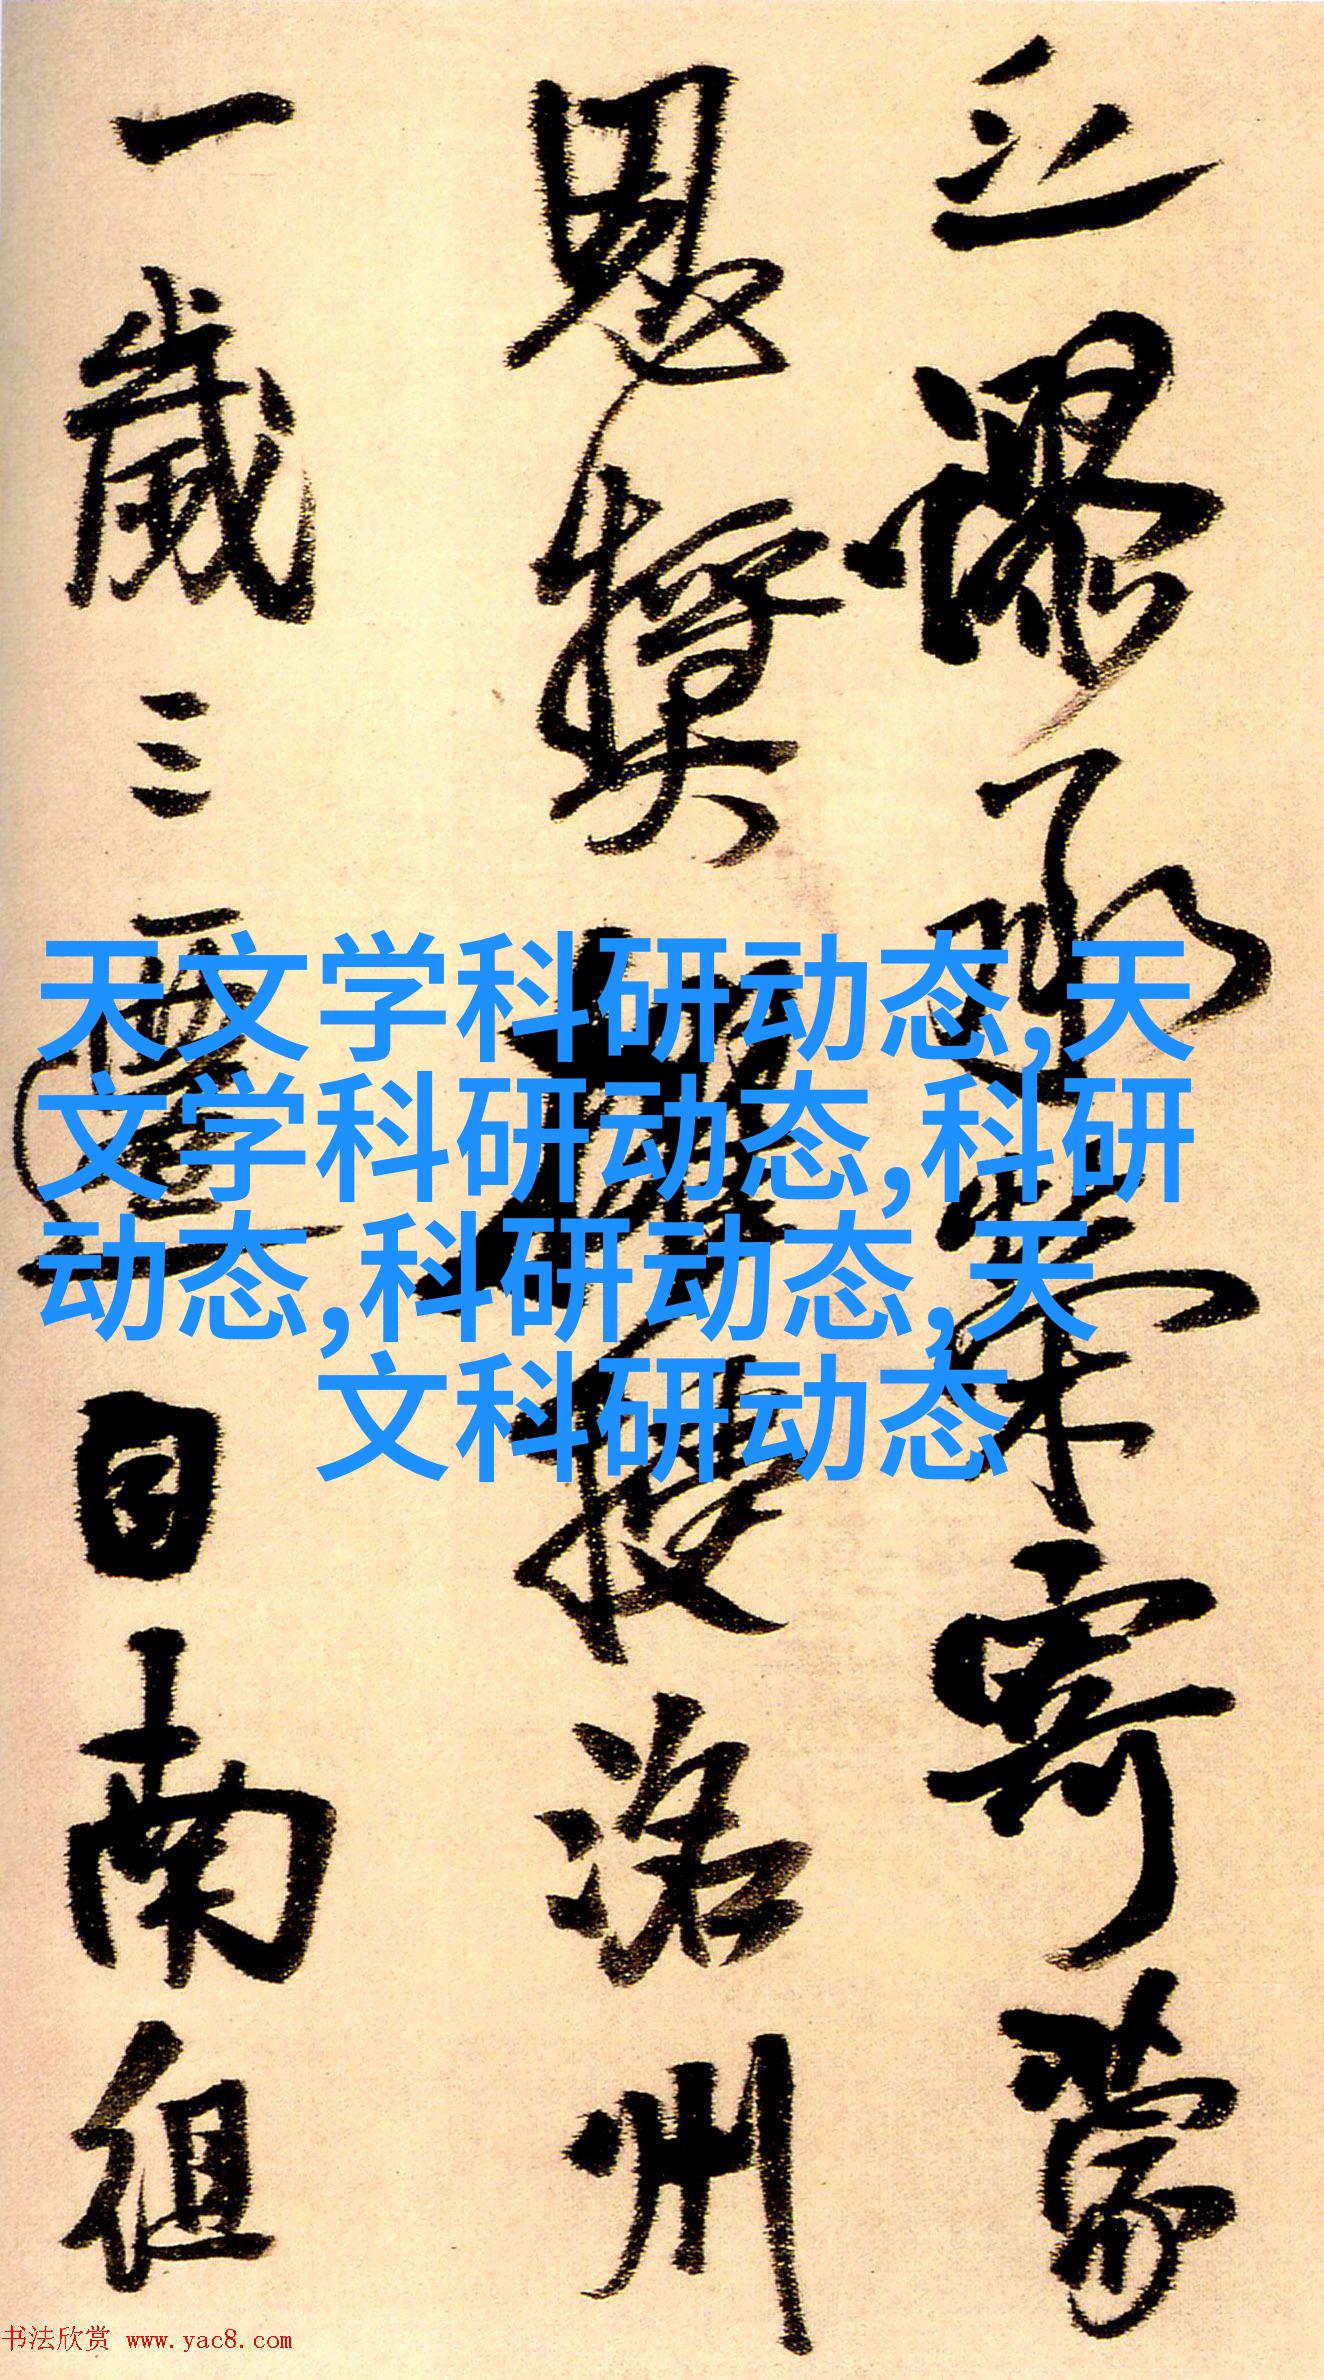 之谬承荣寄蒙
恩奖擢授洛州
一歲三遷日南徂
天文学科研动态,天
文学科研动态,科研
动态,科研动态,天
文科研动态
书法欣赏 www.yac8.com